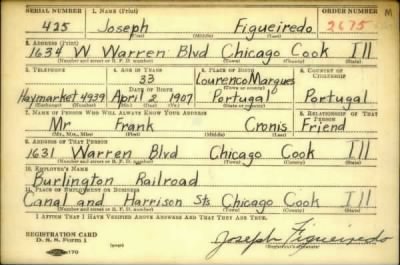 SERIAL NUMBER 1. NAME (Print) ORDER NUMBER M
425 Joseph Figueiredo 2675
(First) (Middle) (Last)
2. ADDRESS (Print)
1634 W Warren Blvd Chicago Cook Ill
(Number and street or R. F. D. number) (Town) (County) (State)
3. TELEPHONE 4. AGE IN YEARS 5. PLACE OF BIRTH 6. COUNTRY OF CITIZENSHIP
33 Lourenco Marques
DATE OF BIRTH (Town or county)
Haymarket 4939 April 9 1907 Portugal Portugal
(Exchange) (Number) (Mo.) (Day) (Yr.) (State or country)
7. NAME OF PERSON WHO WILL ALWAYS KNOW YOUR ADDRESS 8. RELATIONSHIP OF THAT PERSON
Mr Frank Cronis Friend
(Mr., Mrs., Miss) (First) (Middle) (Last)
9. ADDRESS OF THAT PERSON
1631 Warren Blvd Chicago Cook Ill
(Number and street or R. F. D. number) (Town) (County) (State)
10. EMPLOYER'S NAME
Burlington Railroad
11. PLACE OF EMPLOYMENT OR BUSINESS
Canal and Harrison Sts Chicago Cook Ill
(Number and street or R. F. D. number) (Town) (County) (State)
I AFFIRM THAT I HAVE VERIFIED ABOVE ANSWERS AND THAT THEY ARE TRUE.
REGISTRATION CARD
D. S. S. Form 1 (over) Joseph Figueiredo
(Registrant's signature)